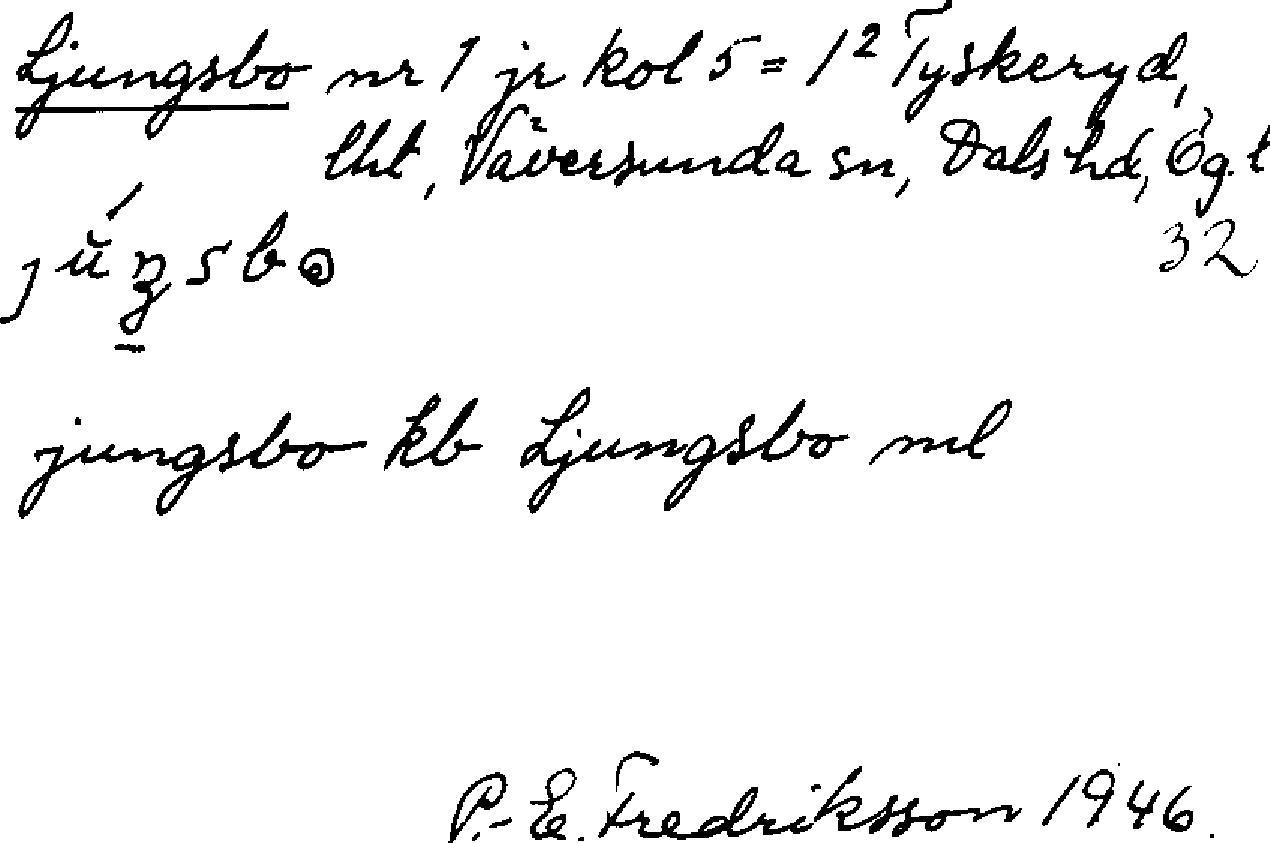 Ljungsbo nr 1 jr kol 5 = 1² Tyskeryd,
lht, Väversunda sn, Dals hd, Ög. t
32
jungsbo kb Ljungsbo ml
P.-E. Fredriksson 1946.